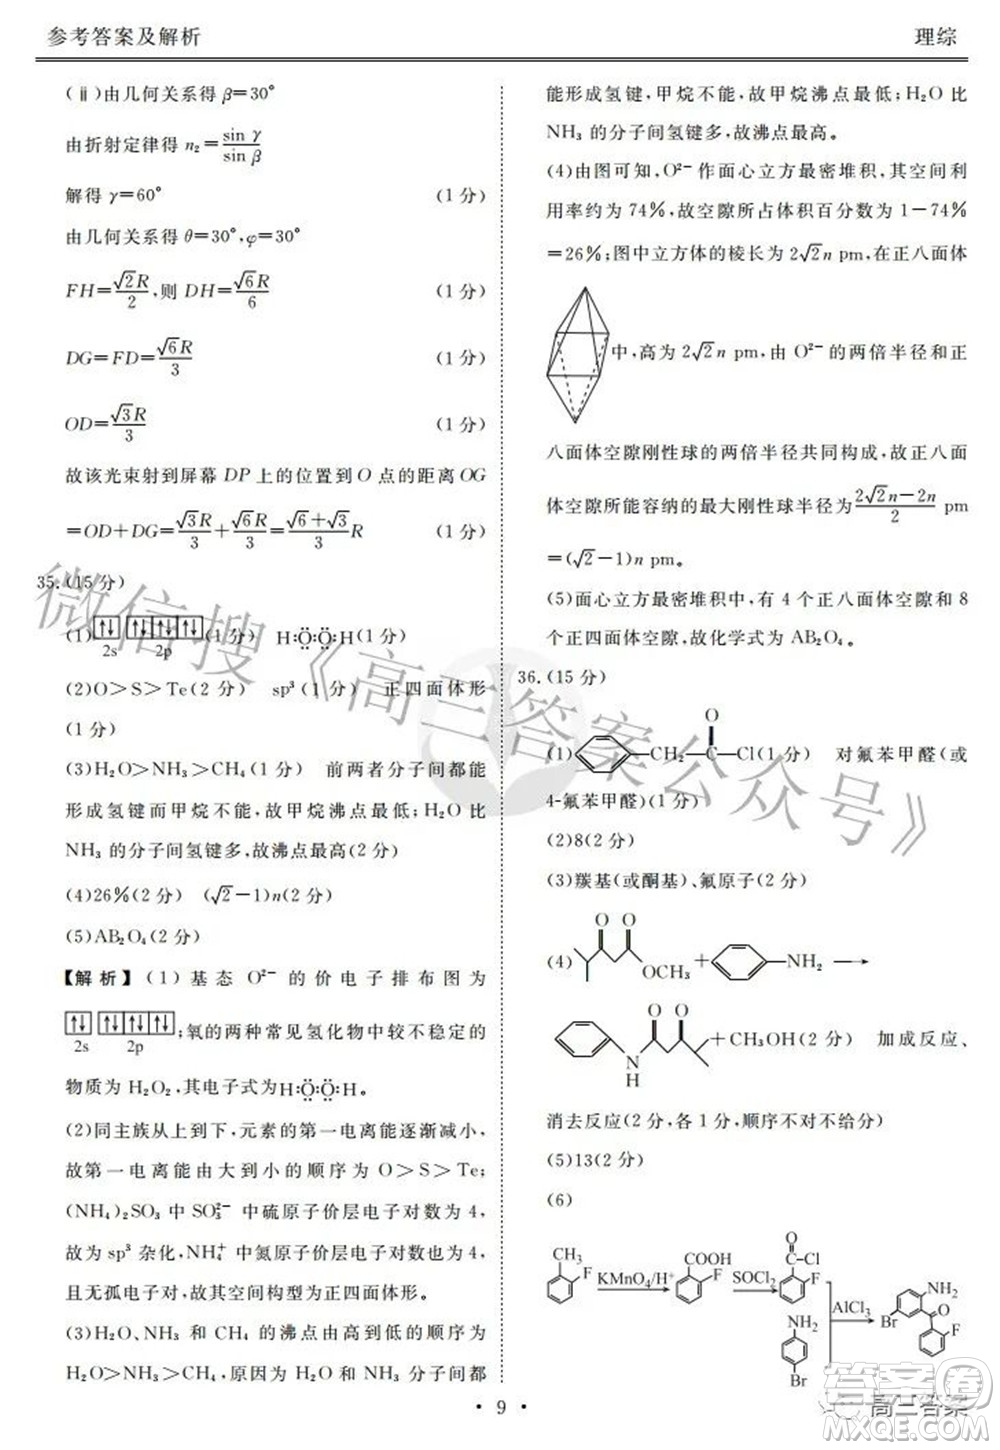 参考答案及解析
理综
(ⅱ)由几何关系得 β=30°
由折射定律得 n₂=sin γ/sin β
解得 γ=60° (1 分)
由几何关系得 θ=30°,φ=30°
FH=√2R/2,则 DH=√6R/6 (1 分)
DG=FD=√6R/3 (1 分)
OD=√3R/3 (1 分)
故该光束射到屏幕 DP 上的位置到 O 点的距离 OG
=OD+DG=√3R/3+√6R/3=(√6+√3)/3 R (1 分)
35.(15 分)
(1)[↑↓] [↑↓|↑↓|↑↓](1 分) H:Ö:Ö:H(1 分)
2s 2p
(2)O>S>Te(2 分) sp³(1 分) 正四面体形
(1 分)
(3)H₂O>NH₃>CH₄(1 分) 前两者分子间都能
形成氢键而甲烷不能,故甲烷沸点最低;H₂O 比
NH₃ 的分子间氢键多,故沸点最高(2 分)
(4)26%(2 分) (√2−1)n(2 分)
(5)AB₂O₄(2 分)
【解析】(1)基态 O²⁻ 的价电子排布图为
[↑↓] [↑↓|↑↓|↑↓];氧的两种常见氢化物中较不稳定的
2s 2p
物质为 H₂O₂,其电子式为H:Ö:Ö:H。
(2)同主族从上到下,元素的第一电离能逐渐减小,
故第一电离能由大到小的顺序为 O>S>Te;
(NH₄)₂SO₃ 中 SO₃²⁻ 中硫原子价层电子对数为 4,
故为 sp³ 杂化,NH₄⁺ 中氮原子价层电子对数为 4,
且无孤电子对,故其空间构型为正四面体形。
(3)H₂O、NH₃ 和 CH₄ 的沸点由高到低的顺序为
H₂O>NH₃>CH₄,原因为前两者分子间都
能形成氢键,甲烷不能,故甲烷沸点最低;H₂O 比
NH₃ 的分子间氢键多,故沸点最高。
(4)由图可知,O²⁻ 作面心立方最密堆积,其空间利
用率约为 74%,故空隙所占体积百分数为 1−74%
=26%;图中立方体的棱长为 2√2n pm,在正八面体
中,高为 2√2n pm,由 O²⁻ 的两倍半径和正
八面体空隙刚性球的两倍半径共同构成,故正八面
体空隙所能容纳的最大刚性球半径为(2√2n−2n)/2 pm
=(√2−1)n pm。
(5)面心立方最密堆积中,有 4 个正八面体空隙和 8
个正四面体空隙,故化学式为 AB₂O₄。
36.(15 分)
O
(1) CH₂—C—Cl(1 分) 对氟苯甲醛(或
4-氟苯甲醛)(1 分)
(2)8(2 分)
(3)羰基(或酮基)、氟原子(2 分)
O O
(4) OCH₃ + NH₂ ⟶
O O
N H +CH₃OH(2 分) 加成反应、
消去反应(2 分,各 1 分,顺序不对不给分)
(5)13(2 分)
(6)
CH₃ F KMnO₄/H⁺ COOH F SOCl₂ O Cl F
NH₂ Br AlCl₃ NH₂ Br O F
• 9 •
微信搜《高三答案公众号》
答案圈
高三答案